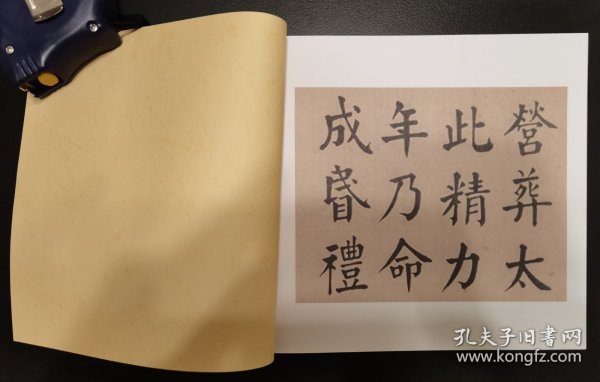 營葬太
此精力
年乃命
成昬禮
孔夫子旧书网
www.kongfz.com